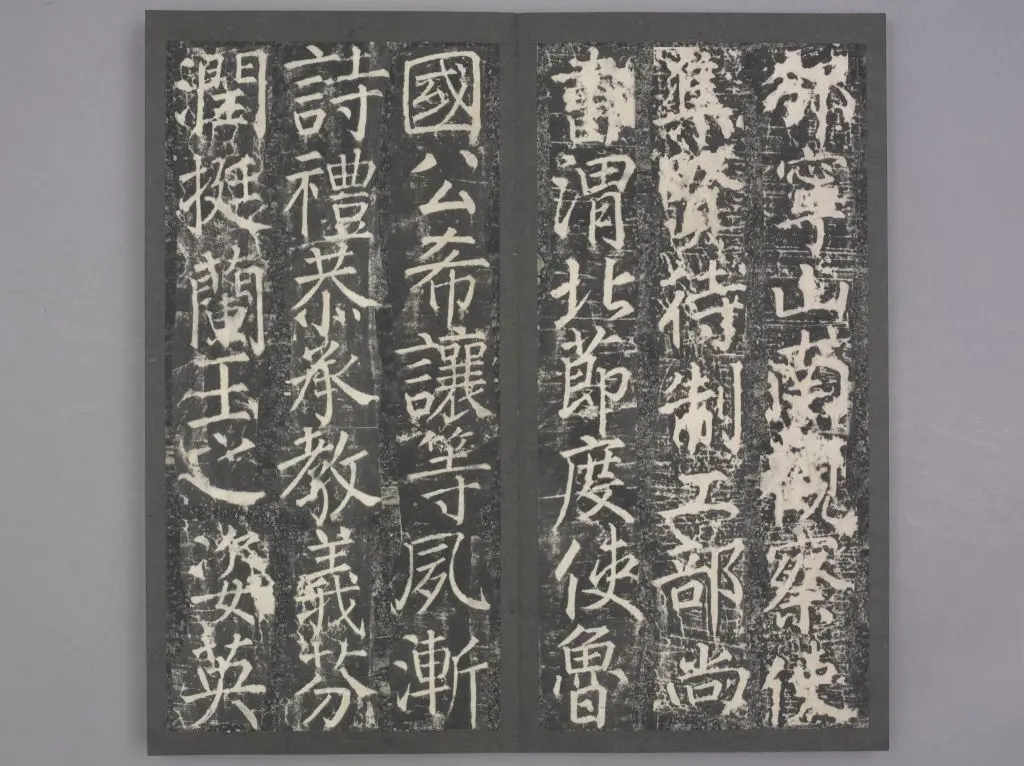 邠寧山南觀察使
集賢待制工部尚
書渭北節度使魯
國公希讓等夙漸
詩禮恭承教義芬
潤挺蘭玉之姿英